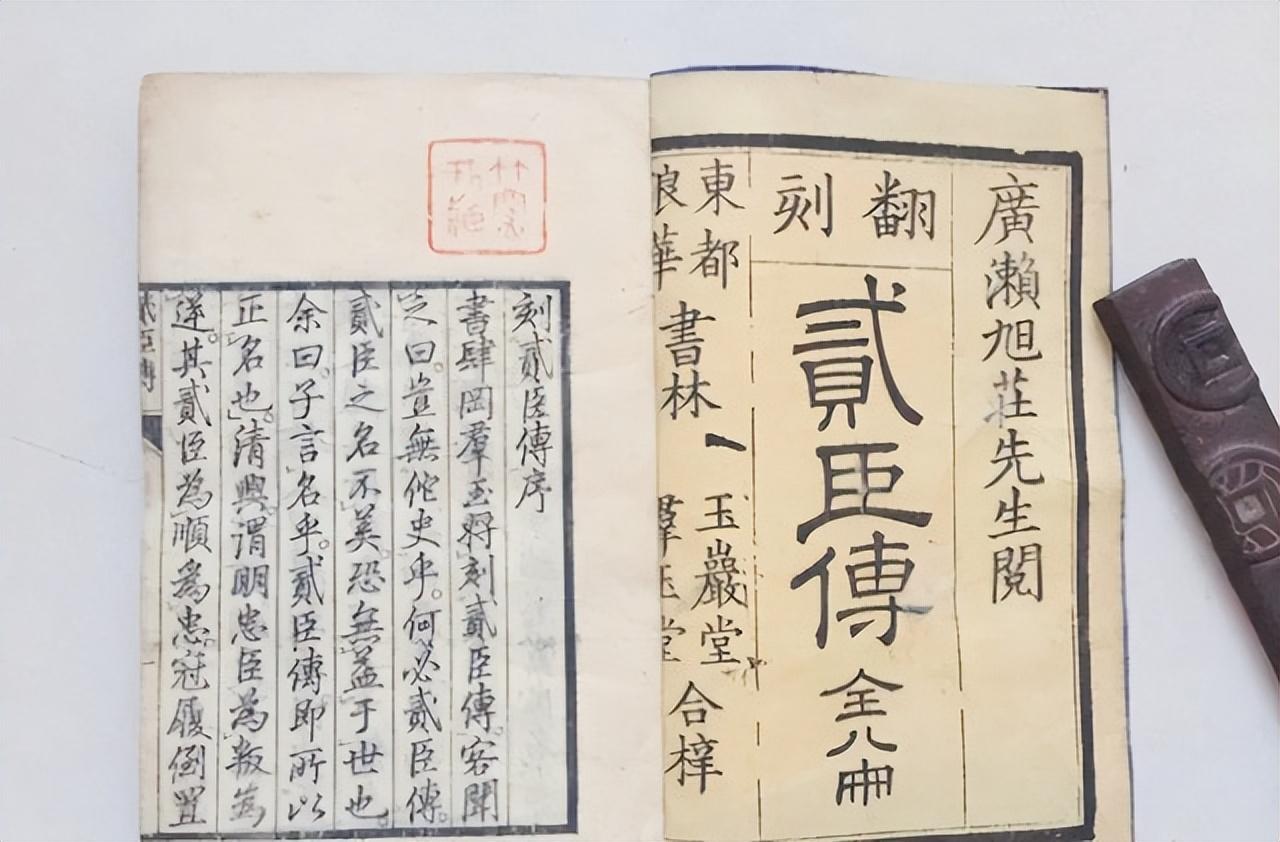 廣瀨旭莊先生閱
翻刻
貳臣傳 全八冊
東都
浪華
書林
玉巖堂
羣玉堂
合梓
刻貳臣傳序
書肆岡羣玉將刻貳臣傳。客聞
之曰。豈無佗史乎。何必貳臣傳。
貳臣之名不美。恐無益于世也。
余曰。子言名乎。貳臣傳即所以
正名也。清興。謂明忠臣為叛為
逆。其貳臣為順為忠。冠履倒置
貳臣傳